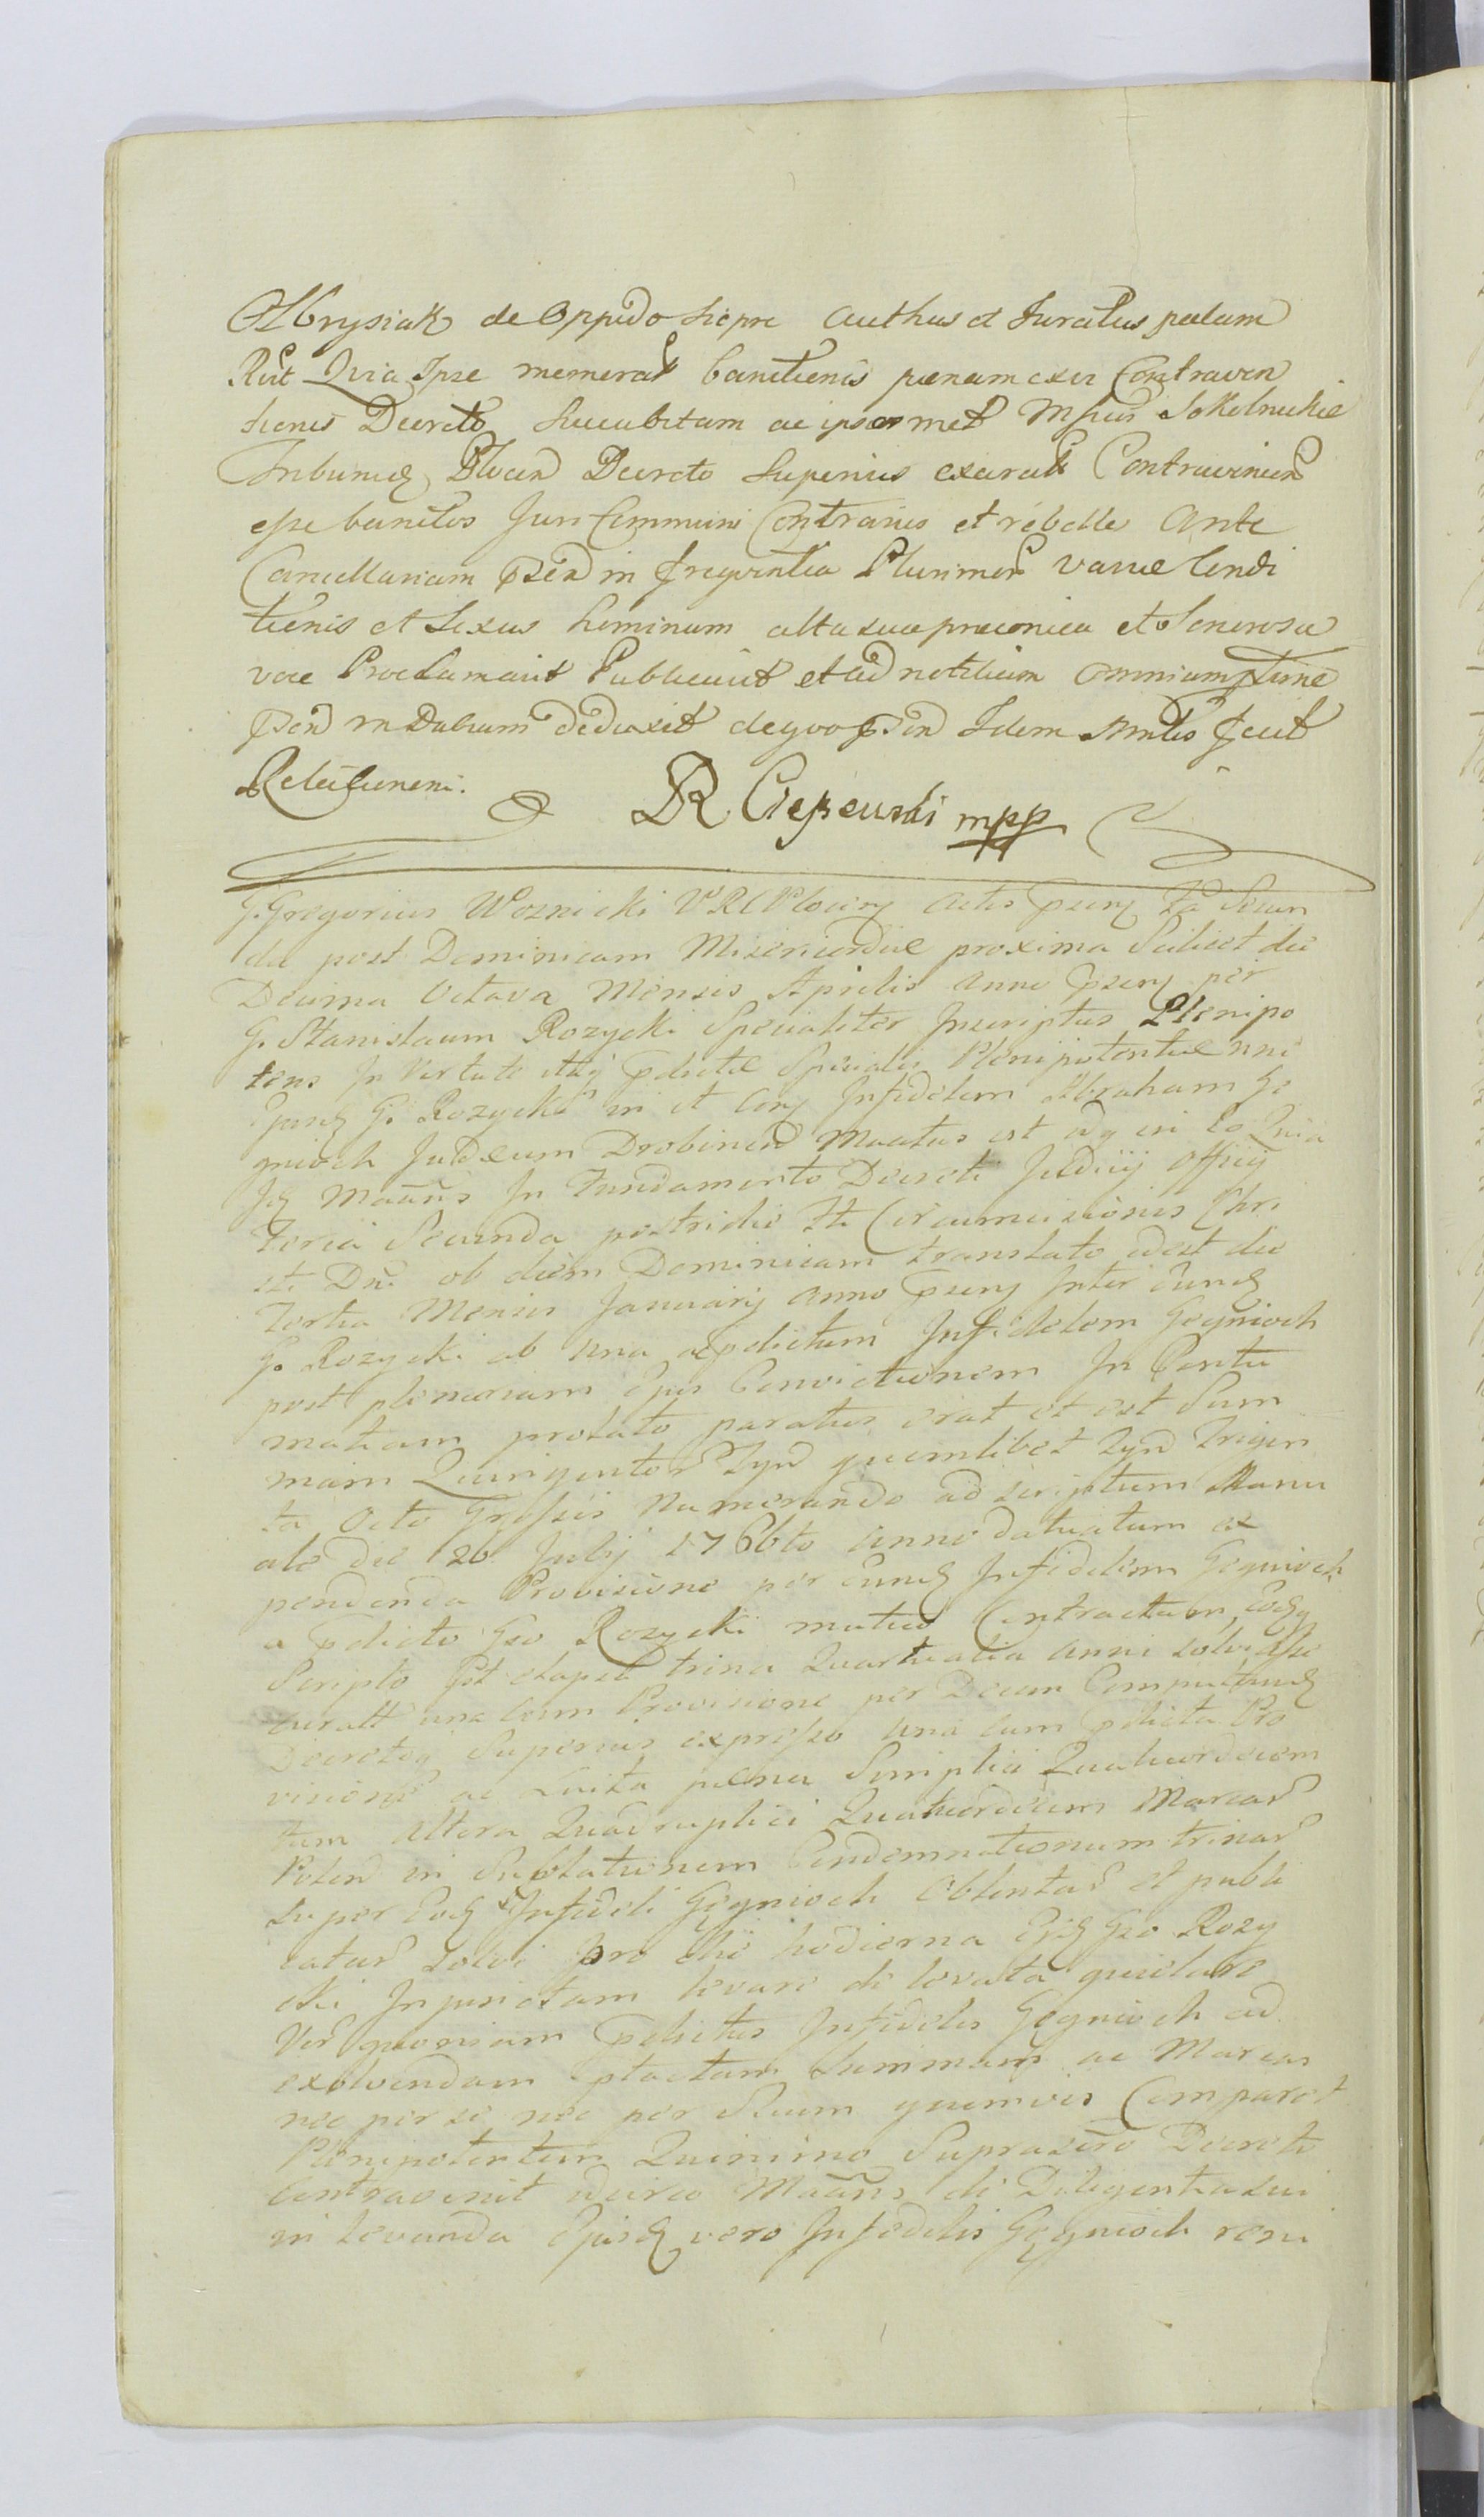 Olbrysiak de Oppido Siepre authus et Juratus palam
Rlit Quia Ipse memerat banitienis pænam exu Contraven
tienis Decreto Succubitam ac ipsosmet Mfcus Sokolnickie
Tribunid Plocen Decreto Superius exarat Contravenien
eſse banitos Juri Communi Contrarios et rebelles Ante
Cancellariam Psen in frequentia Plurimor variæ Condi
tienis et Sexus hominum alta sua præconica et Sonorosa
voce Proclamavit Publicavit et ad notitiam omnium
Psen deduxit de quo Psen Idem Mnlis fecit
Relatienem.
R Cieszewski mpp
G. Gregorius Woznicki V R C Plocen Actis Psen fa Secun
da post Dominicam Misericordiæ proxima Scilicet die
Decima Octava Mensis Aprilis Anno Psen per
G. Stanislaum Rozycki Specialiter Inscriptus Plenipo
tens In Virtute itaq Pdictæ Specialis Plenipotentiæ nni
G. Rozycki in et Con Infidelem Abraham Ge
gnioch Judæum Drobinen Mactus est in Eo Quia
Id Macñs In Fundamento Decreti Judicij Officij
Feria Secunda postridie fti Circumcisionis Chri
sti Dñi ob diem Dominicam translato idest die
Tertia Mensis Januarij anno Psen Inter eund
G. Rozycki ab una ac pdictum Infidelem Gegnioch
post plenariam Ejus Convictienem In Contu
matiam prolato paratus erat et est Sum
mam Quingentor Tyn quemlibet Tyn Trigin
ta Octo Groſsis Numerando ad scriptum Manu
ale die 20 Julij 1766to Anno datuatum ex
pendenda Provisione per eund Infidelem Gegnioch
a Pdicto Gso Rozycki mutuo Contractam, Eodq
Scripto Pst elapsa trina Quartualia anni solvi aſse
curatt una cum Provisione per Decem Computand
Decretoq Superius expreſso una cum pdicta Pro
visione ac Luita pæna Simplici Quatuordecem
tum altera Quadruplici Quatuordecim Marcar
Polen in Sublatienem Condemnationum trinar
super Eod Infideli Gegnioch Obtentar et publi
catar Solvi pro die hodierna Gso Rozy
cki Injunctam levare de levata quietare
Ver quoniam Pdictus Infidelis Gegnioch ad
exolvendam ptactam Summam ac Marcas
nec per se nec per Suum quemvis Comparet
Plenipotentem Quinimo Suprascro Decreto
Contravenit idcirco Macñs de Diligentia sui
in levanda Ejusd vero Infidelis Gegnioch reni